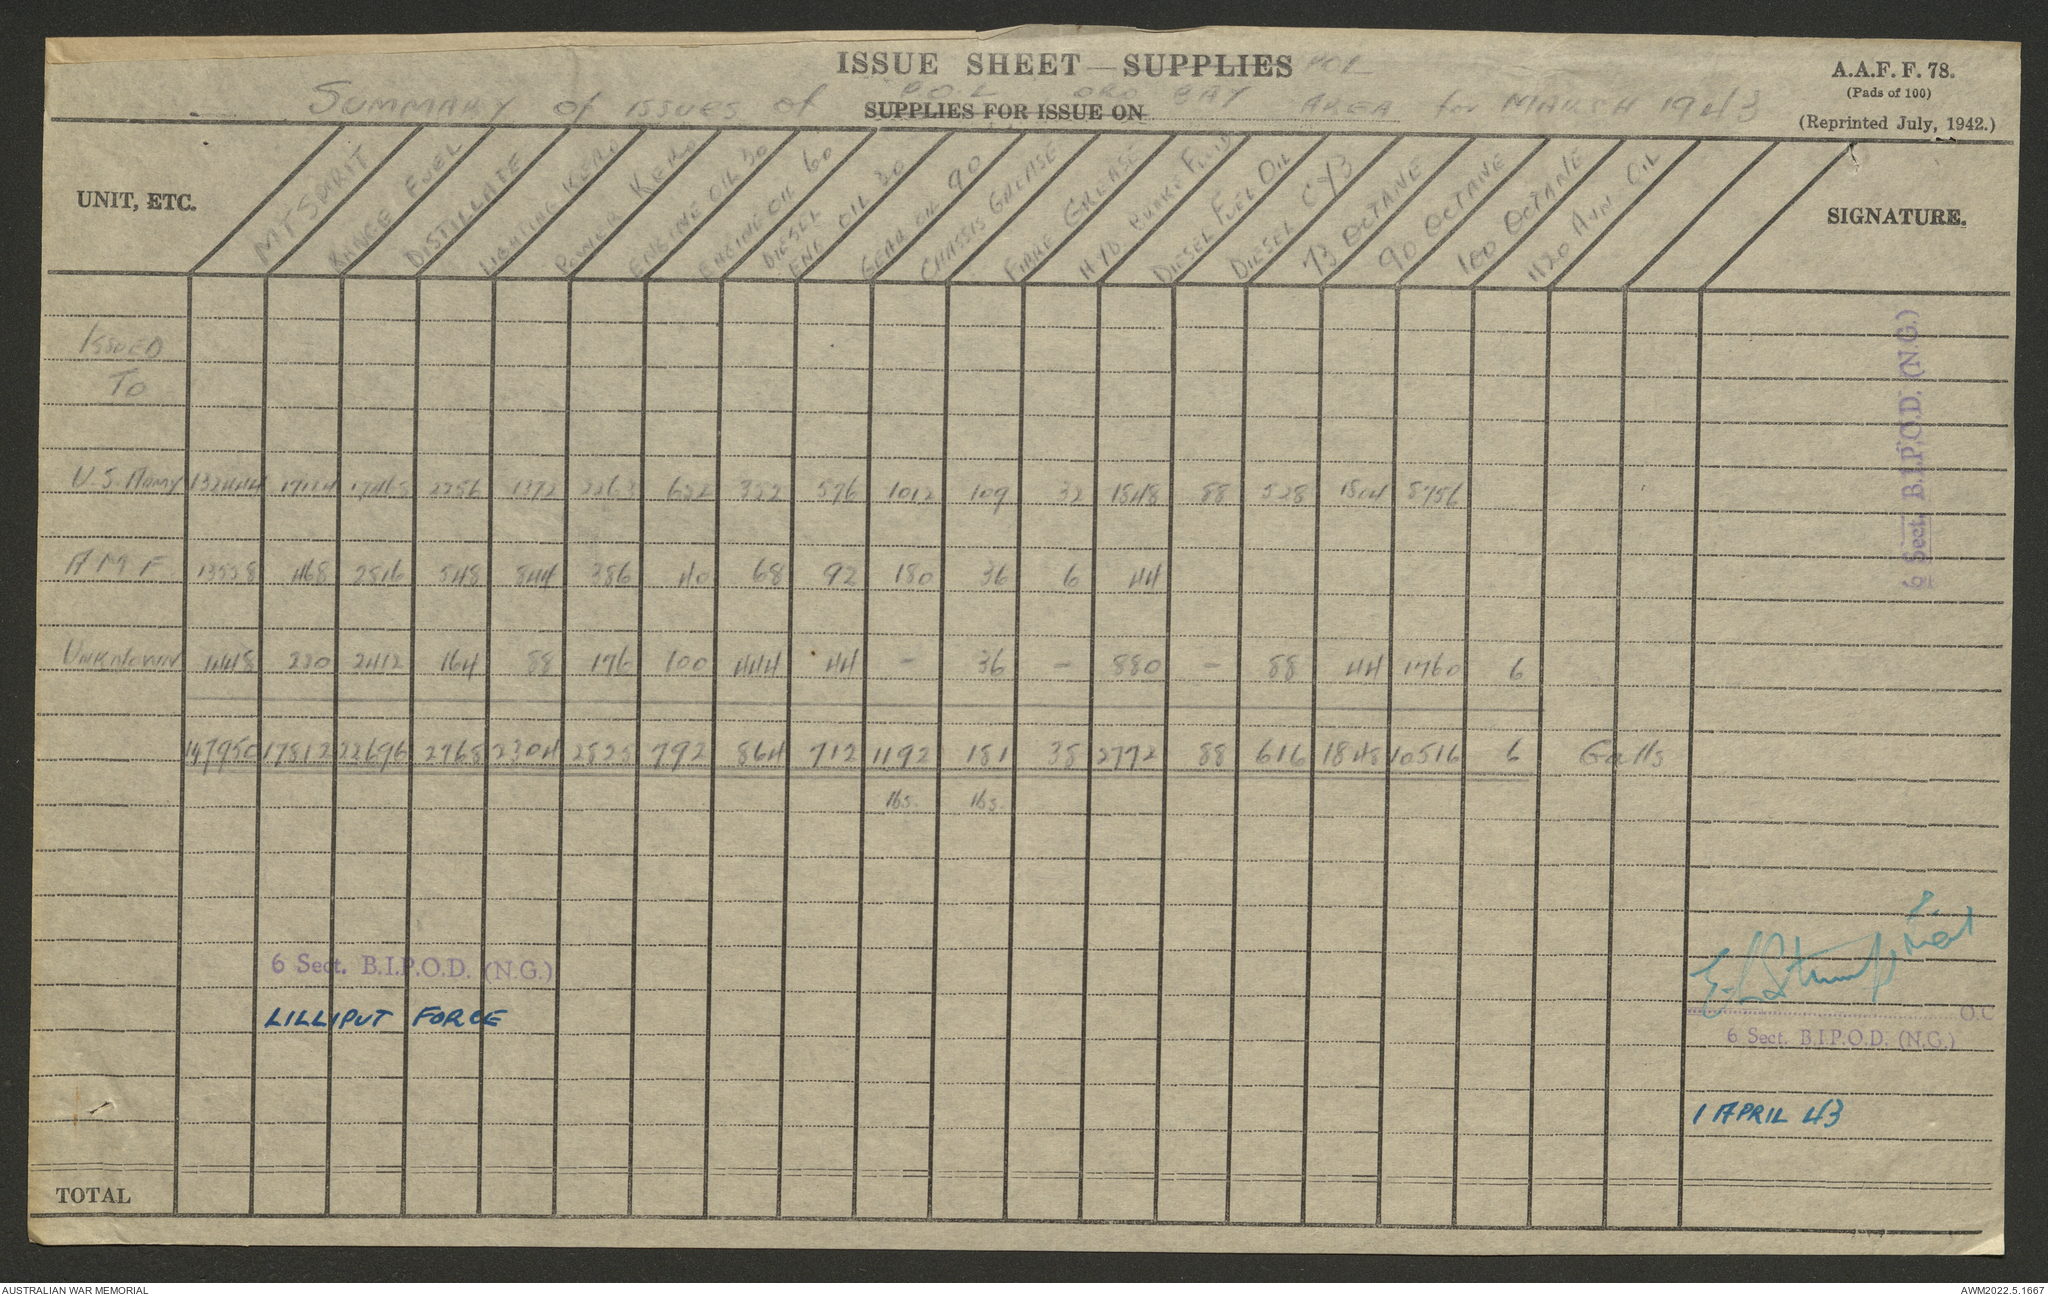 ISSUE SHEET — SUPPLIES POL
A.A.F. F. 78.
(Pads of 100)
(Reprinted July, 1942.)
SUMMARY of ISSUES of P.O.L ORO BAY AREA for MARCH 1943
SUPPLIES FOR ISSUE ON
UNIT, ETC. MT SPIRIT RANGE FUEL DISTILLATE LIGHTING KERO POWER KERO ENGINE OIL 30 ENGINE OIL 60 DIESEL ENG OIL 30 GEAR OIL 90 CHASSIS GREASE FIBRE GREASE HYD. BRAKE FLUID DIESEL FUEL OIL DIESEL CY3 73 OCTANE 90 OCTANE 100 OCTANE 1120 AVN OIL SIGNATURE.
ISSUED
TO
U.S. Army 132444 17124 17468 2256 1372 2263 652 352 576 1012 109 32 1848 88 528 1804 8756
A M F 13558 468 2816 348 844 386 40 68 92 180 36 6 44
UNKNOWN 220 2412 164 88 176 100 444 44 - 36 - 880 - 88 44 1760 6
147950 17812 22696 2768 2304 2825 792 864 712 1192 181 38 2772 88 616 1848 10516 6 Galls
lbs. lbs.
6 Sect. B.I.P.O.D. (N.G.)
6 Sect. B.I.P.O.D. (N.G.)
LILLIPUT FORCE
O.C
6 Sect. B.I.P.O.D. (N.G.)
1 APRIL 43
TOTAL
AUSTRALIAN WAR MEMORIAL
AWM2022.5.1667